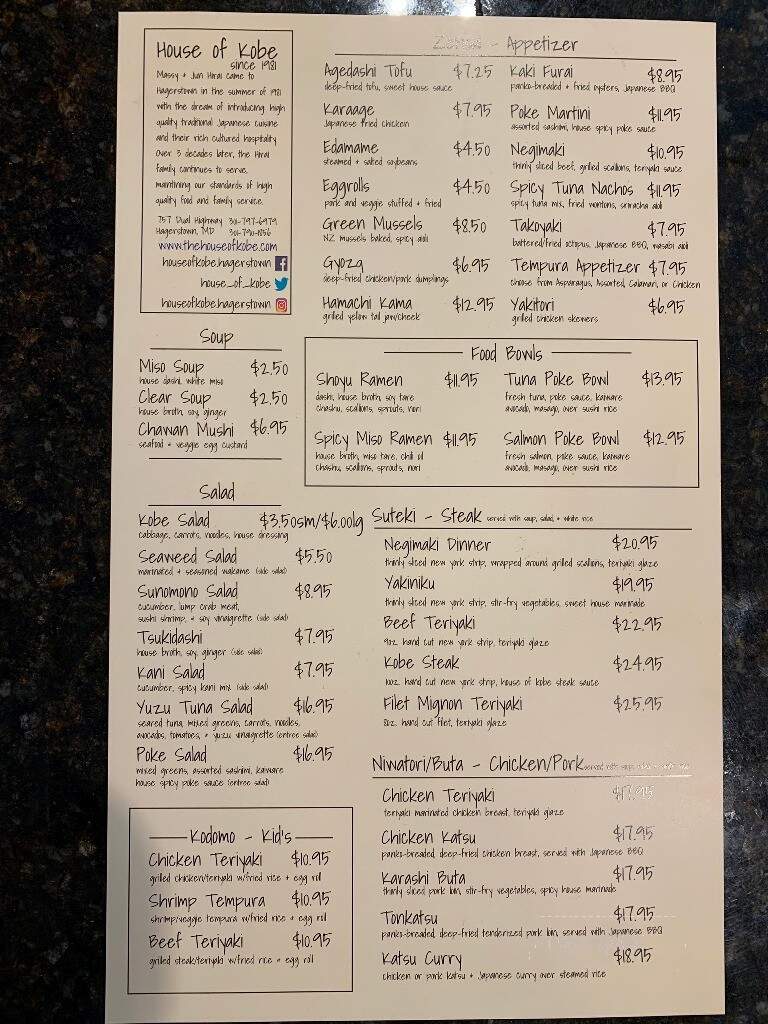 House of Kobe
since 1981
Massy + Jun Hirai came to
Hagerstown in the summer of 1981
with the dream of introducing high
quality traditional Japanese cuisine
and their rich cultured hospitality
Over 3 decades later, the Hirai
family continues to serve,
maintining our standards of high
quality food and family service.
757 Dual Highway 301-797-6979
Hagerstown, MD 301-790-1056
www.thehouseofkobe.com
houseofkobe.hagerstown
house_of_kobe
houseofkobe.hagerstown
- Appetizer
Agedashi Tofu $7.25
deep-fried tofu, sweet house sauce
Karaage $7.95
Japanese fried chicken
Edamame $4.50
steamed + salted soybeans
Eggrolls $4.50
pork and veggie stuffed + fried
Green Mussels $8.50
NZ mussels baked, spicy aioli
Gyoza $6.95
deep-fried chicken/pork dumplings
Hamachi Kama $12.95
grilled yellow tail jaw/cheek
Kaki Furai $8.95
panko-breaded + fried oysters, Japanese BBQ
Poke Martini $11.95
assorted sashimi, house spicy poke sauce
Negimaki $10.95
thinly sliced beef, grilled scallions, teriyaki sauce
Spicy Tuna Nachos $11.95
spicy tuna mix, fried wontons, sriracha aioli
Takoyaki $7.95
battered/fried octopus, Japanese BBQ, wasabi aioli
Tempura Appetizer $7.95
choose from Asparagus, Assorted, Calamari, or Chicken
Yakitori $6.95
grilled chicken skewers
Soup
Miso Soup $2.50
house dashi, white miso
Clear Soup $2.50
house broth, soy, ginger
Chawan Mushi $6.95
seafood + veggie egg custard
Food Bowls
Shoyu Ramen $11.95
dashi, house broth, soy tare
chashu, scallions, sprouts, nori
Spicy Miso Ramen $11.95
house broth, miso tare, chili oil
chashu, scallions, sprouts, nori
Tuna Poke Bowl $13.95
fresh tuna, poke sauce, kaiware
avocado, masago, over sushi rice
Salmon Poke Bowl $12.95
fresh salmon, poke sauce, kaiware
avocado, masago, over sushi rice
Salad
Kobe Salad $3.50sm/$6.00lg
cabbage, carrots, noodles, house dressing
Seaweed Salad $5.50
marinated + seasoned wakame (side salad)
Sunomono Salad $8.95
cucumber, lump crab meat,
sushi shrimp, + soy vinaigrette (side salad)
Tsukidashi $7.95
house broth, soy, ginger (side salad)
Kani Salad $7.95
cucumber, spicy kani mix (side salad)
Yuzu Tuna Salad $16.95
seared tuna, mixed greens, carrots, noodles,
avocados, tomatoes, + yuzu vinaigrette (entree salad)
Poke Salad $16.95
mixed greens, assorted sashimi, kaiware
house spicy poke sauce (entree salad)
Kodomo - Kid's
Chicken Teriyaki $10.95
grilled chicken/teriyaki w/fried rice + egg roll
Shrimp Tempura $10.95
shrimp/veggie tempura w/fried rice + egg roll
Beef Teriyaki $10.95
grilled steak/teriyaki w/fried rice + egg roll
Suteki - Steak served with soup, salad, + white rice
Negimaki Dinner $20.95
thinly sliced new york strip, wrapped around grilled scallions, teriyaki glaze
Yakiniku $19.95
thinly sliced new york strip, stir-fry vegetables, sweet house marinade
Beef Teriyaki $22.95
9oz. hand cut new york strip, teriyaki glaze
Kobe Steak $24.95
10oz. hand cut new york strip, house of kobe steak sauce
Filet Mignon Teriyaki $25.95
8oz. hand cut filet, teriyaki glaze
Niwatori/Buta - Chicken/Pork served with soup,
Chicken Teriyaki $17.95
teriyaki marinated chicken breast, teriyaki glaze
Chicken Katsu $17.95
panko-breaded, deep-fried chicken breast, served with Japanese BBQ
Karashi Buta $17.95
thinly sliced pork loin, stir-fry vegetables, spicy house marinade
Tonkatsu $17.95
panko-breaded, deep-fried tenderized pork loin, served with Japanese BBQ
Katsu Curry $18.95
chicken or pork katsu + Japanese curry over steamed rice